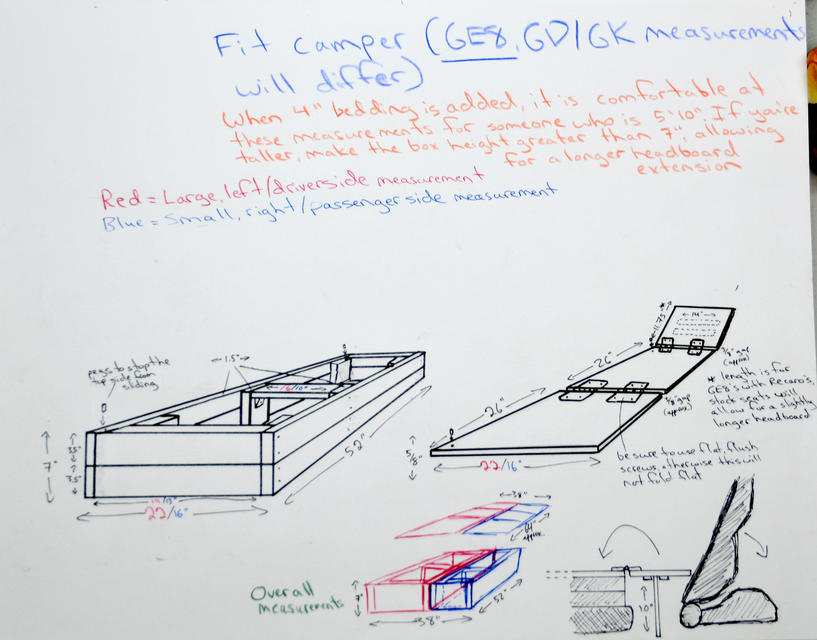 Fit camper (GE8, GD/GK measurements
will differ)
When 4" bedding is added, it is comfortable at
these measurements for someone who is 5'10". If you're
taller, make the box height greater than 7", allowing
for a longer headboard
extension
Red = Large, left/driverside measurement
Blue = Small, right/passenger side measurement
pegs to stop the
top side from
sliding
1.5"
7"
3.5"
3.5"
22/16"
52"
11.75"
14"
26"
26"
3/8" gap
(approx)
3/8" gap
(approx)
* length is for
GE8's with Recaro's,
stock seats will
allow for a slightly
longer headboard
5/8"
22/16"
be sure to use flat, flush
screws, otherwise this will
not fold flat
38"
64"
approx
Overall
measurements
7"
38"
52"
10"